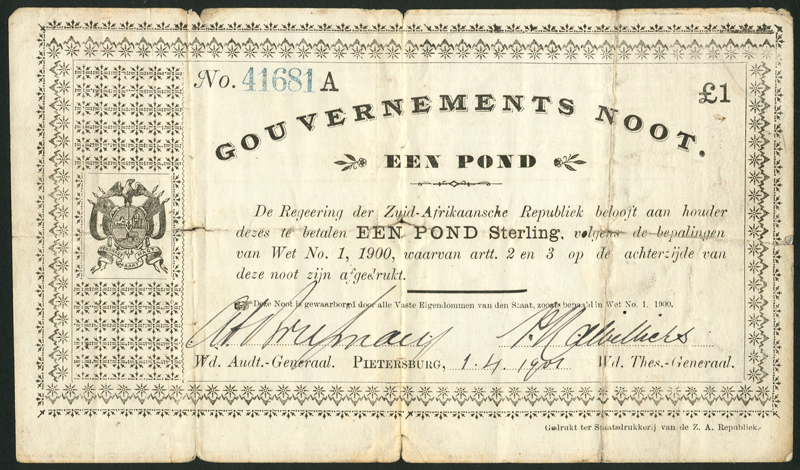 No. 41681 A
£1
GOUVERNEMENTS NOOT.
EEN POND
De Regeering der Zuid-Afrikaansche Republiek belooft aan houder
dezes te betalen EEN POND Sterling, volgens de bepalingen
van Wet No. 1, 1900, waarvan artt. 2 en 3 op de achterzijde van
deze noot zijn afgedrukt.
Deze Noot is gewaarborgd door alle Vaste Eigendommen van den Staat, zooals bepaald in Wet No. 1. 1900.
Wd. Audt.-Generaal. PIETERSBURG, 1.4.1901 Wd. Thes.-Generaal.
Gedrukt ter Staatsdrukkerij van de Z. A. Republiek.